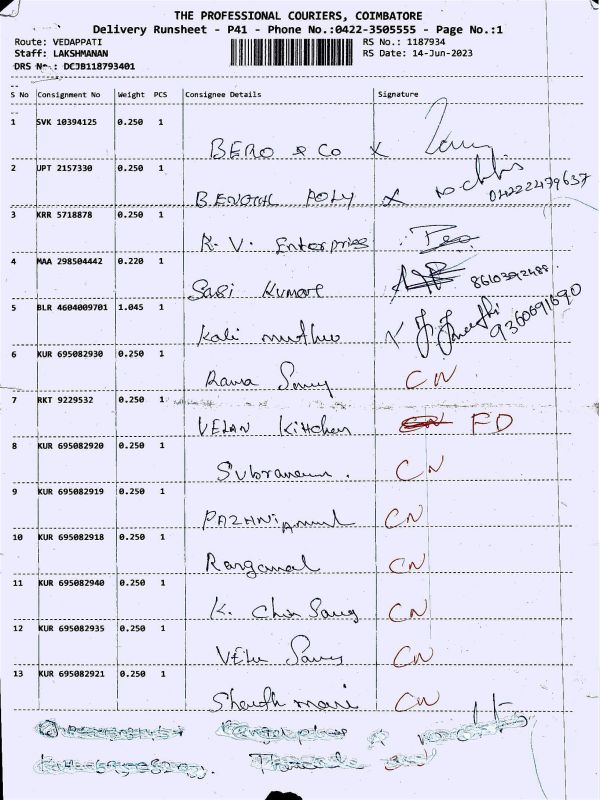 THE PROFESSIONAL COURIERS, COIMBATORE
Delivery Runsheet - P41 - Phone No.:0422-3505555 - Page No.:1
Route: VEDAPPATI RS No.: 1187934
Staff: LAKSHMANAN RS Date: 14-Jun-2023
DRS No.: DCJB118793401
S No Consignment No Weight PCS Consignee Details Signature
1 SVK 10394125 0.250 1
BERO & Co x
2 UPT 2157330 0.250 1
BENOTHL POLY x
04222479637
3 KRR 5718878 0.250 1
K. V. Enterprises
4 MAA 298504442 0.220 1
Sasi Kumar
5 BLR 4604009701 1.045 1
Kali muthu x 9360691690
6 KUR 695082930 0.250 1
Rama Samy CN
7 RKT 9229532 0.250 1
VELAN Kitchen FD
8 KUR 695082920 0.250 1
CN
9 KUR 695082919 0.250 1
PAZHNIAMML CN
10 KUR 695082918 0.250 1
Rangamal CN
11 KUR 695082940 0.250 1
K. Chin Samy CN
12 KUR 695082935 0.250 1
VELU Samy CN
13 KUR 695082921 0.250 1
mari CN